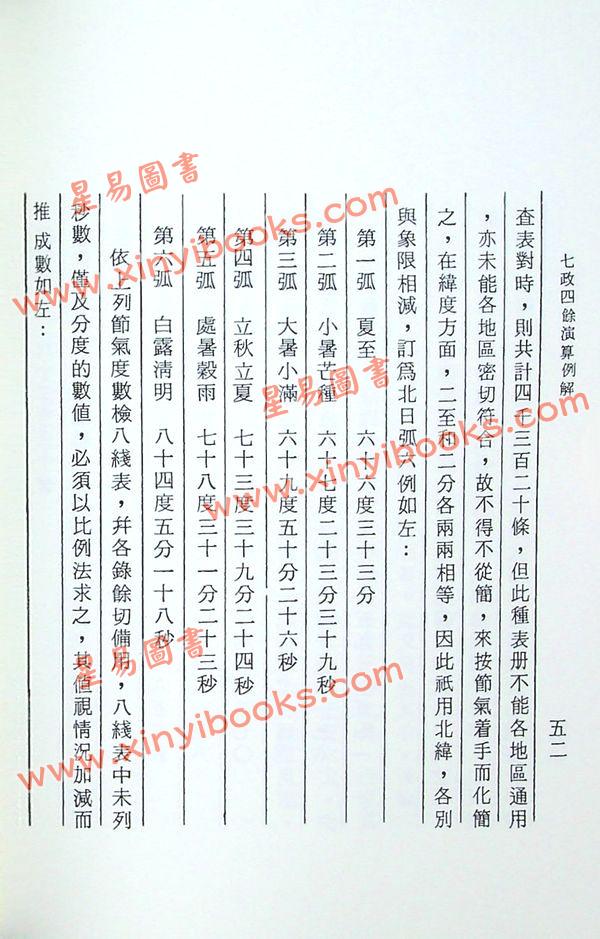 七政四餘演算例解
五二
查表對時，則共計四千三百二十條，但此種表册不能各地區通用
，亦未能各地區密切符合，故不得不從簡，來按節氣着手而化簡
之，在緯度方面，二至和二分各兩兩相等，因此祇用北緯，各別
與象限相減，訂爲北日弧六例如左：
第一弧　夏至　六十六度三十三分
第二弧　小暑芒種　六十七度二十三分三十九秒
第三弧　大暑小滿　六十九度五十分二十六秒
第四弧　立秋立夏　七十三度三十九分二十四秒
第五弧　處暑穀雨　七十八度三十一分二十三秒
第六弧　白露清明　八十四度五分一十八秒
依上列節氣度數檢八綫表，幷各錄餘切備用，八綫表中未列
秒數，僅及分度的數值，必須以比例法求之，其值視情況加減而
推成數如左：
星易圖書
www.xinyibooks.com
星易圖書
www.xinyibooks.com
星易圖書
www.xinyibooks.com